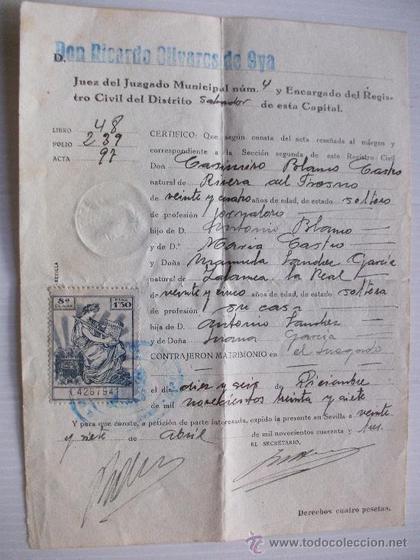 D. Don Ricardo Olivares de Oya
Juez del Juzgado Municipal núm. 4 y Encargado del Regis-
tro Civil del Distrito Salvador de esta Capital.
LIBRO 48
FOLIO 239
ACTA 97
CERTIFICO: Que según consta del acta reseñada al márgen y
correspondiente a la Sección segunda de este Registro Civil
Don Casimiro Blanco Castro
natural de Rivera del Fresno
de veinte y cuatro años de edad, de estado soltero
de profesión jornalero
hijo de D. Antonio Blanco
y de D.ª María Castro
y Doña Manuela Sanchez García
natural de Zalamea la Real
de veinte y cinco años de edad, de estado soltera
de profesión su casa
hija de D. Antonio Sanchez
y de Doña García
CONTRAJERON MATRIMONIO en el Juzgado
el día diez y seis de Diciembre
de mil novecientos treinta y siete
Y para que conste, a petición de parte interesada, expido la presente en Sevilla a veinte
y siete de abril de mil novecientos cuarenta y tres.
EL SECRETARIO,
Derechos cuatro pesetas.
8ª CLASE
1'50
todocoleccion.net